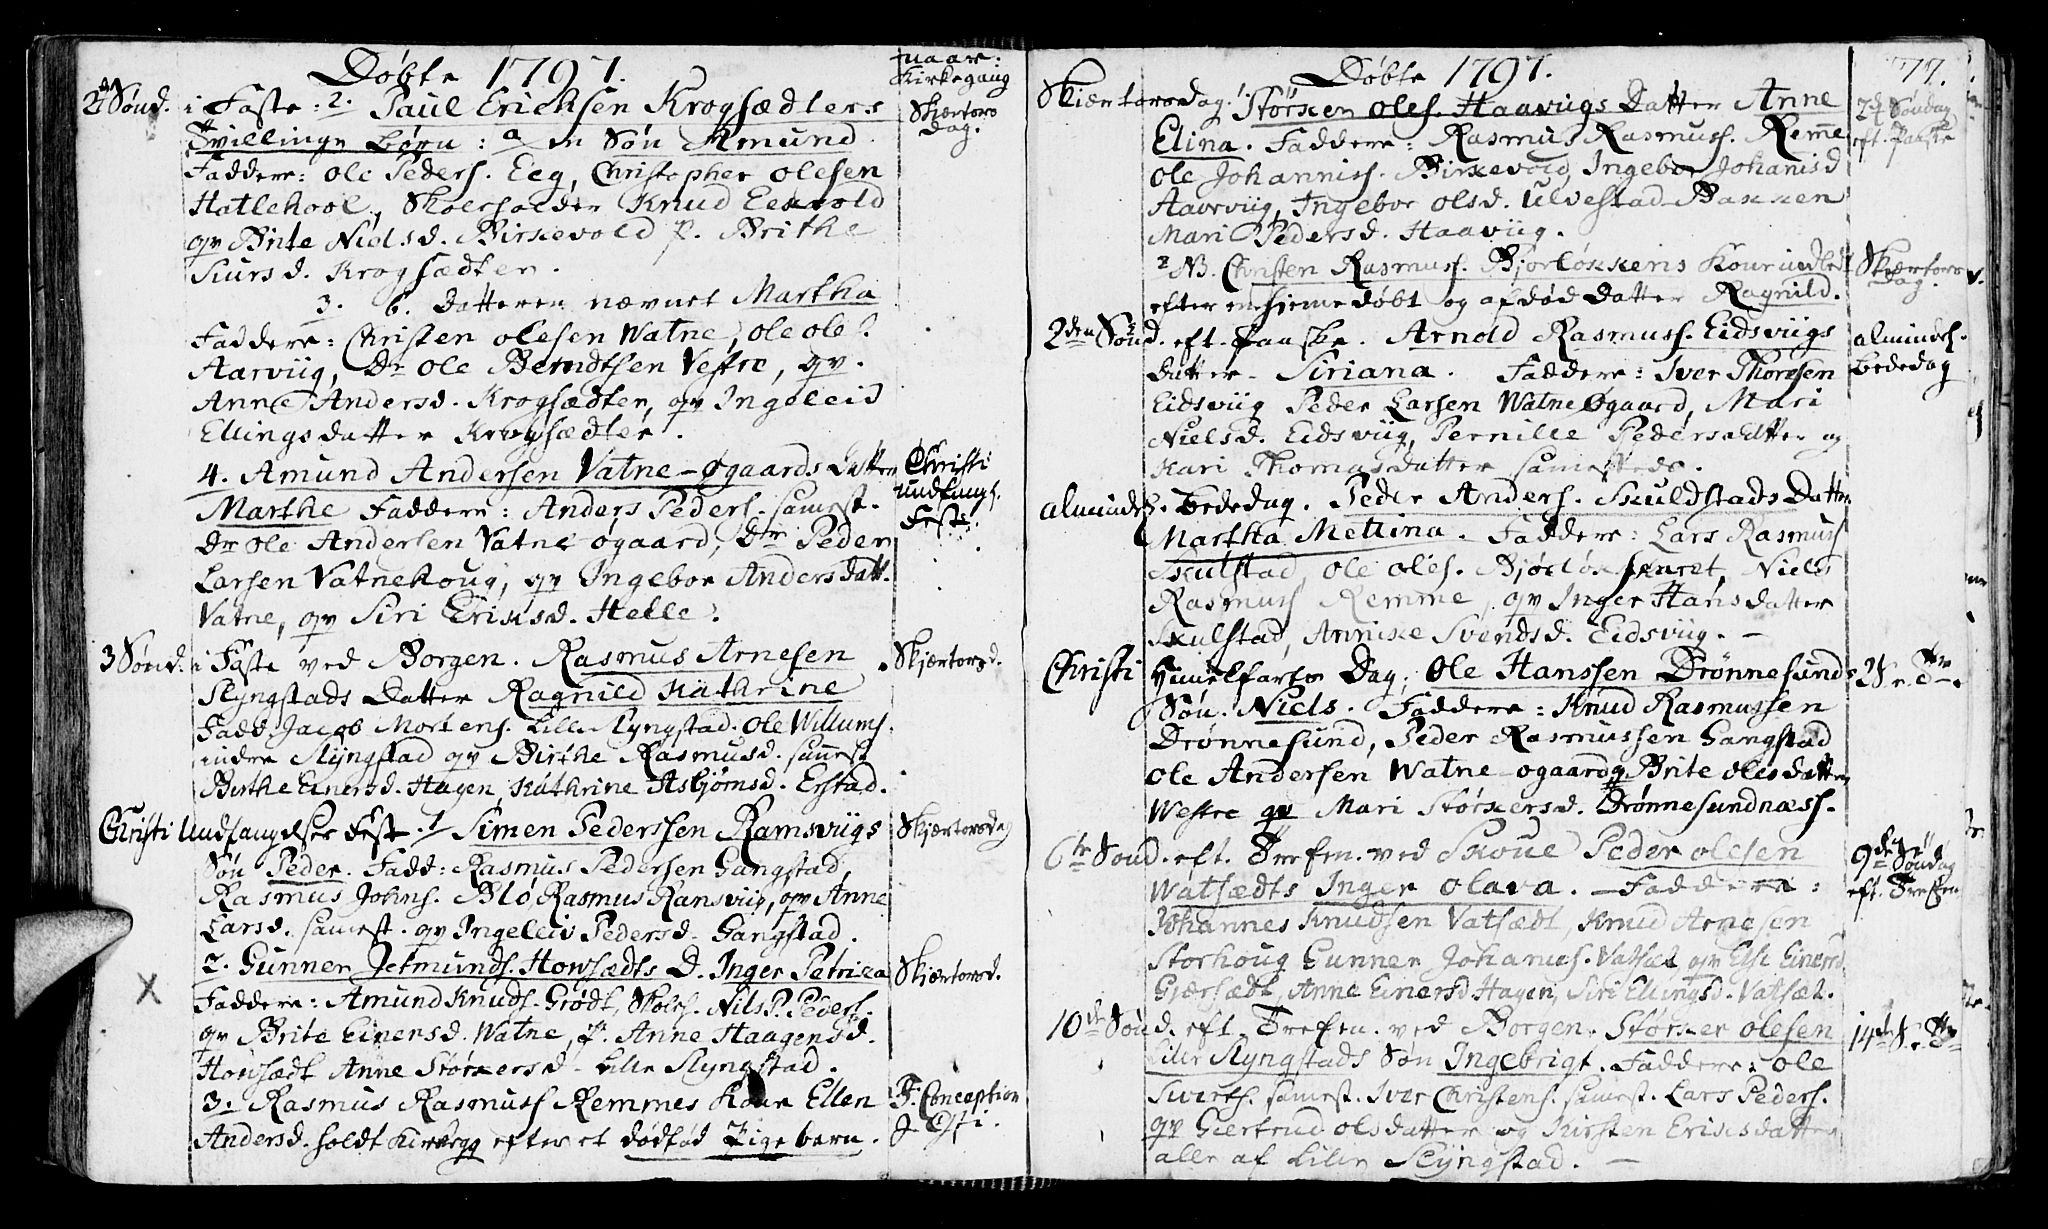 Döbte 1797.
naar:
Kirkegang
2den Sönd. i Faste: 2. Paul Ericksen Krogsædters
Skiertors
dag.
Tvillinge börn: a en Sön Amund
Faddere: Ole Peders. Eeg, Christopher Olesen
Hatlehool, Skoleholder Knud Eekrold
qv Brite Nielsd. Birkevold P. Brithe
Siursd. Krogsædter.
3. b. Datteren nævnet Martha
Faddere: Christen Olesen Watne, Ole Ols.
Aarviig, Dr Ole Berndtsen Vestre, qv.
Anne Andersd. Krogsædter, qv Ingeleid
Ellingsdatter Krogsædter.
4. Amund Andersen Vatne-Øgaards Datter
Christi
undfangs.
Fest:
Marthe Faddere: Anders Peders. samest.
Dr Ole Andersen Vatne øgaard, Dr Peder
Larsen Vatnehoug, qv Ingebor Andersdatt.
Vatne, qv Siri Eriksd. Helle.
3 Sönd. i Faste ved Borgen. Rasmus Arnesen
Skjærtorsd.
Slyngstads Datter Ragnild Kathrine
Fadd. Jacob Mortens. Lille Slyngstad. Ole Willums.
indre Slyngstad qv Birthe Rasmusd. samest
Berthe Einersd. Hagen Kathrine Asbjörnsd. Erstad.
Christi Undfangelses Fest. 1 Simen Pederssen Ramsviigs
Skjærtorsdag
Sön Peder. Fadd: Rasmus Pedersen Gangstad,
Rasmus Johns. Blö Rasmus Ransviig, qv Anne
Larsd. samest. qv Ingeleiv Pedersd. Gangstad.
2. Gunner Jetmunds. Howsædts D. Inger Petrica
Skjærtorsd.
Faddere: Amund Knuds. Grödt, Skoleh. Nils P. Peders.
qv Brite Einersd. Watne, P. Anne Haagensd.
Howsædt Anne Störkersd. Lille Slyngstad.
3. Rasmus Rasmuss Remmes Kone Ellen
F. Conception
J. Csti.
Andersd. holdt Kirkegg efter et dödföd Pige barn.
Döbte 1797.
77.
Skiærtorsdag. 1. Störker Oles. Haaviigs Datter Anne
2de Söndag
eft. Paaske
Elina. Faddere: Rasmus Rasmuss. Remme
Ole Johanniss. Birkevold, Ingebor Johanisd
Aarviig, Ingebor Olsd. Ulvestad-Bakken
Mari Pedersd. Haaviig.
2 NB. Christen Rasmuss. Bjorlökkens Kone indledt
Skjærtors
dag.
efter en hjemedöbt og afdöd Datter Ragnild.
2den Sönd. eft. Paaske. Arnold Rasmuss. Eidsviigs
almindel.
Bededag
Datter - Siriana. Faddere: Iver Thoresen
Eidsviig Peder Larsen Watne Øgaard, Mari
Nielsd. Eidsviig, Pernille Pedersdatter og
Kari Thomasdatter samesteds.
almindel. Bededag. Peder Anders. Skuldstads Datter
Martha Mettina. Faddere: Lars Rasmuss
Skulstad, Ole Oles. Bjorlökkenret, Niels
Rasmuss Remme, qv Inger Hansdatter
Skulstad, Annike Svendsd. Eidsviig. -
Christi Himelfarts Dag, Ole Hanssen Drönnesunds
Sön. Niels. Faddere: Knud Rasmussen
Drönnesund, Peder Rasmussen Gangstad
Ole Andersen Watne-ogaard qv Brite Olesdatter
Westre qv Mari Störkersd. Drönnesundnæss.
6te Sönd. eft. Trefen. ved Skoue Peder Olesen
9de Söndag
eft. Trefen
Watsædts Inger Olava. - Faddere:
Johannes Knudsen Vatsædt, Knud Arnesen
Storhoug Gunner Johanns. Vatsæt qv Else Einersd
Gjærsædt, Anne Einersd Hagen, Siri Ellingsd. Vatsæt.
10de Sönd. eft. Trefen. ved Borgen. Störker Olesen
Lille Slyngstads Sön Ingebrigt. Faddere: Ole
Siverts. samest. Iver Christens. samest. Lars Peders.
qv Giertrud Olsdatter og Kirsten Eriksdatter
alle af Lille Slyngstad. -